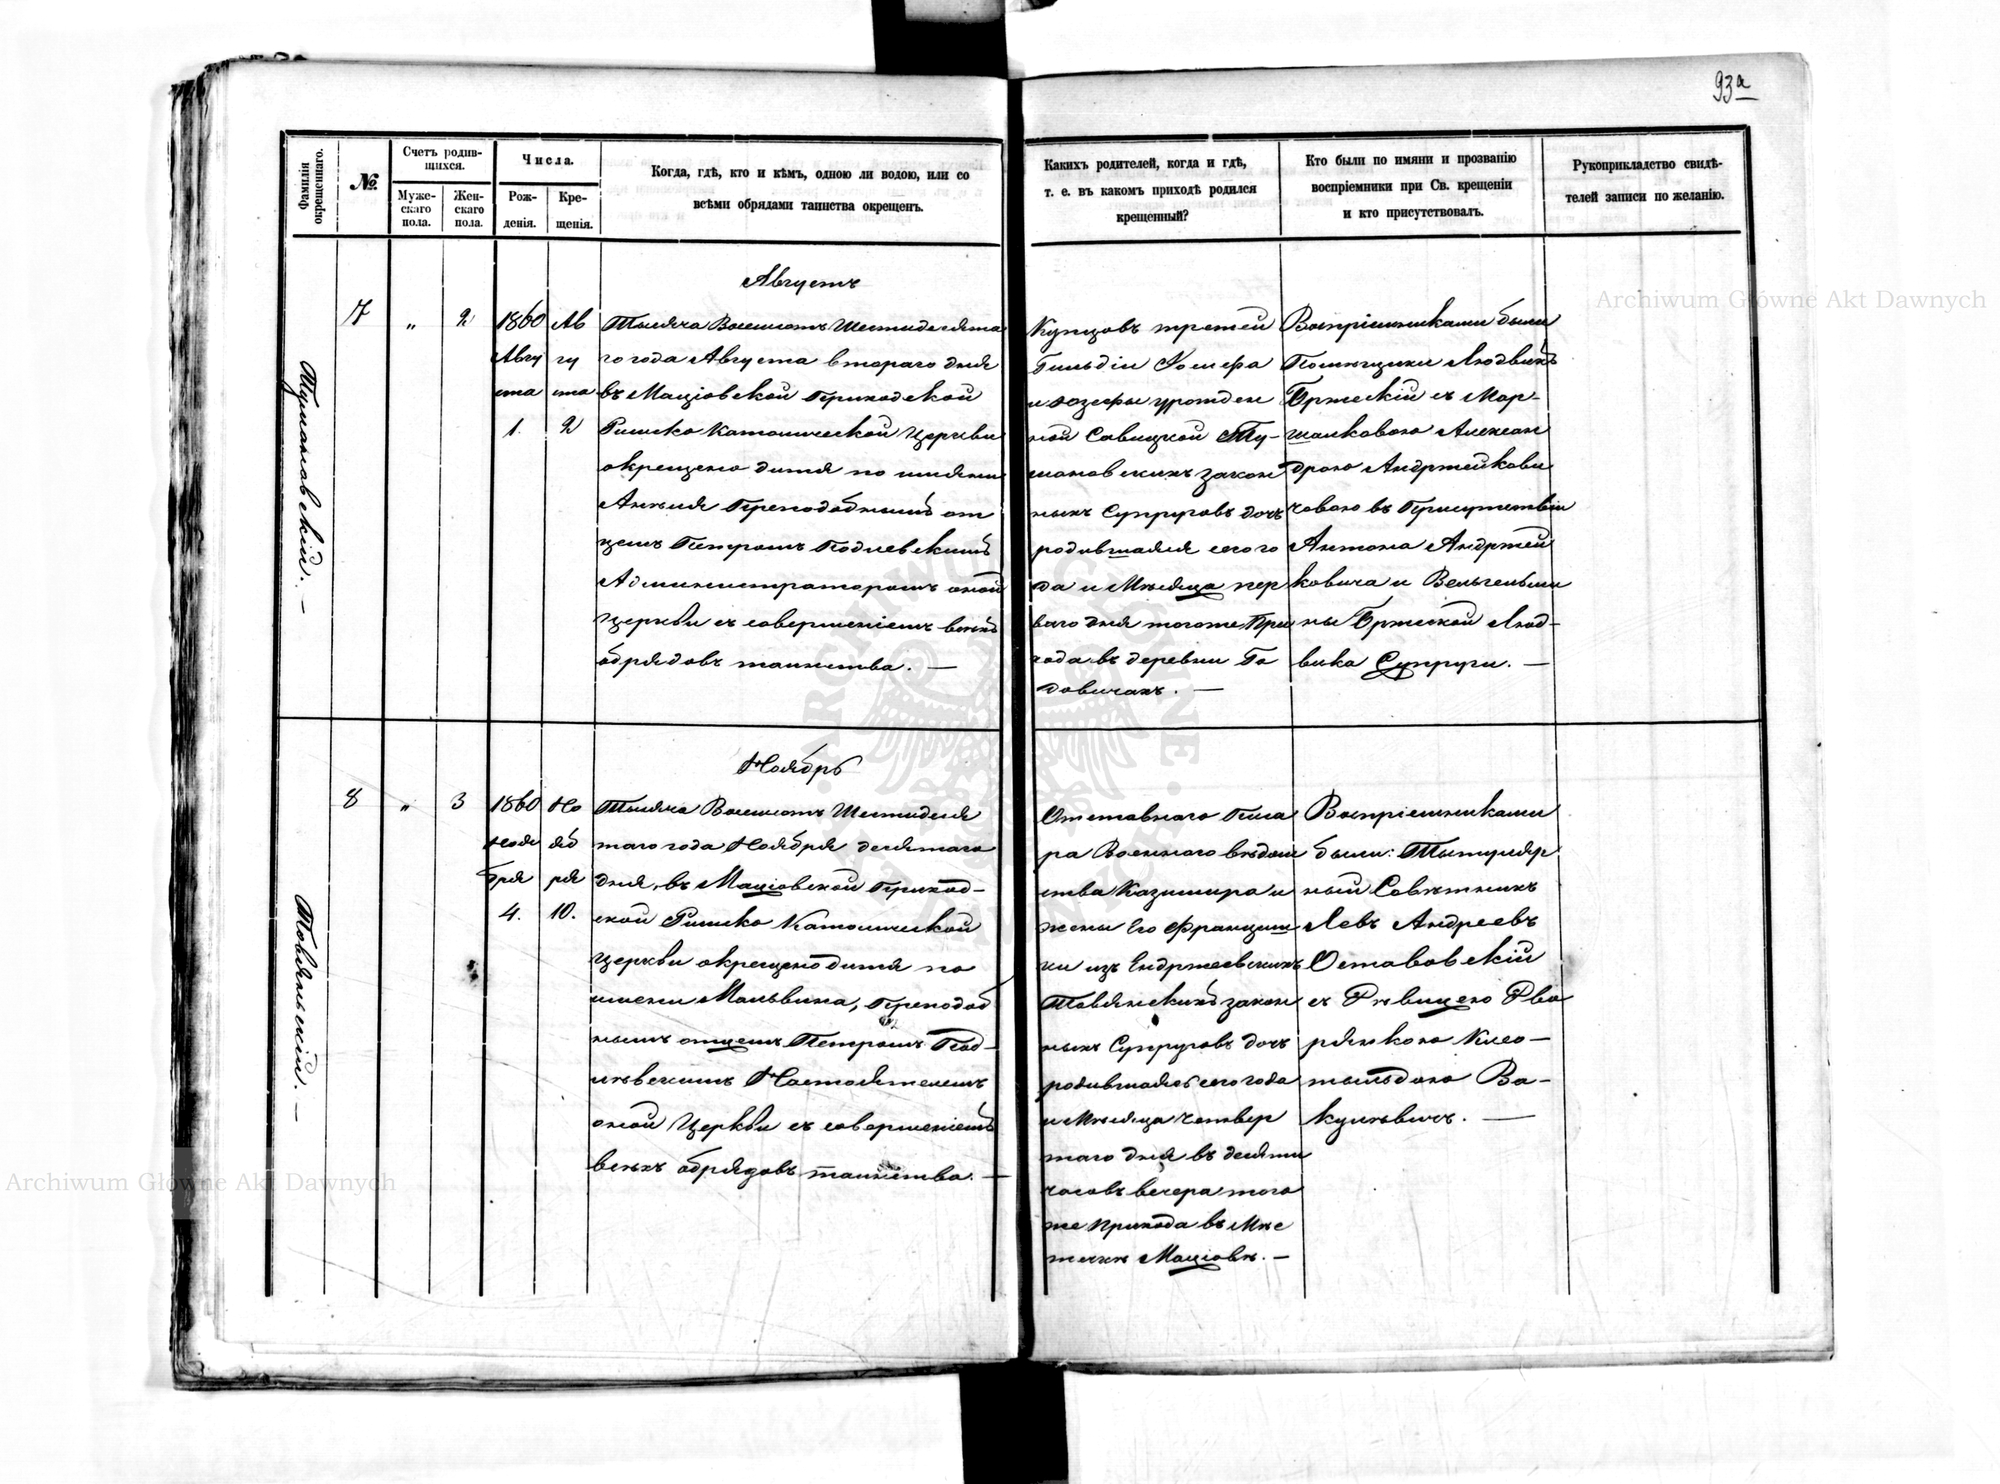 93а
Фамилія окрещеннаго.
№
Счетъ родив-
шихся.
Муже-
скаго
пола.
Жен-
скаго
пола.
Числа.
Рож-
денія.
Кре-
щенія.
Когда, гдѣ, кто и кѣмъ, одною ли водою, или со
всѣми обрядами таинства окрещенъ.
Какихъ родителей, когда и гдѣ,
т. е. въ какомъ приходѣ родился
крещенный?
Кто были по имяни и прозванію
воспріемники при Св. крещеніи
и кто присутствовалъ.
Рукоприкладство свидѣ-
телей записи по желанію.
Августъ
Тумановскій. —
7
"
2
1860
Авгу
ста
1.
Ав
гу
ста
2
Тысяча Восемсотъ Шестидесята
го года Августа втораго дня
въ Маціовской Приходской
Римско Католической Церкви
окрещено дитя по имяни
Анѣля Преподобнымъ от
цемъ Петромъ Подлевскимъ
Администраторомъ оной
Церкви съ совершеніемъ всѣхъ
обрядовъ таинства. —
Купцовъ третей
Гильдіи Іосифа
и Юзефы урожден
ной Савицкой Ту-
мановскихъ закон
ныхъ Супруговъ дочь
родившаяся сего го
да и Мѣсяца пер
ваго дня тогоже При
хода въ деревни Го
довичахъ. —
Воспріемниками были
Помѣщики Людвикъ
Бржескій съ Мар-
шалковою Алексан
дрою Андржейкови
човою въ Присутствіи
Антона Андржей
ковича и Вельгельми
ны Бржеской Люд-
вика Супруги. —
Ноябрь
Товяньскій. —
8
"
3
1860
Ноя
бря
4.
Но
яб
ря
10.
Тысяча Восемсотъ Шестидеся
таго года Ноября десятаго
дня, въ Маціовской Приход-
ской Римско Католической
Церкви окрещено дитя по
имени Мальвина, Преподоб
нымъ отцемъ Петромъ Под-
лѣвскимъ Настоятелемъ
оной Церкви съ совершеніемъ
всѣхъ обрядовъ таинства. —
Отставнаго Писа
ра Военнаго вѣдом
ства Казимира и
жены Его Франциш
ки изъ Ендржеевскихъ
Товянскихъ закон
ныхъ Супруговъ дочь
родившаяся сего года
и Мѣсяца Четвер
таго дня въ десяти
часовъ вечера того
же Прихода въ Мѣс
течкѣ Маціовѣ. —
Воспріемниками
были: Титуляр
ный Совѣтникъ
Левъ Андреевъ
Оставовскій
съ Дѣвицею Дво
рянкою Клео-
тыльдою Ва-
кулѣвичъ. —
Archiwum Główne Akt Dawnych
Archiwum Główne Akt Dawnych